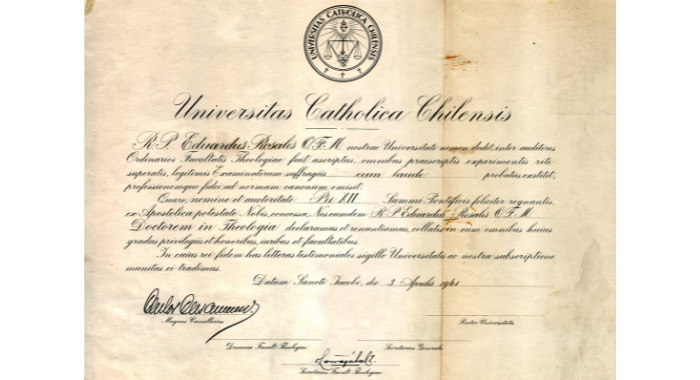 UNIVERSITAS CATHOLICA CHILENSIS
Universitas Catholica Chilensis
R. P. Eduardus Rosales O.F.M. nostrae Universitate nomen dedit, inter auditores
Ordinarios Facultatis Theologiae fuit ascriptus, omnibus praescriptis experimentis rite
superatis, legitimis Examinatorum suffragiis cum laude probatus exstitit,
professionemque fidei ad normam canonum emisit.
Quare, nomine et auctoritate Pii XII Summi Pontificis feliciter regnantis,
ex Apostolica potestate Nobis concessa, Nos eumdem R. P. Eduardus Rosales O.F.M.
Doctorem in Theologia declaramus et renuntiamus, collatis in eum omnibus huius
gradus privilegiis et honoribus, iuribus et facultatibus.
In cuius rei fidem has litteras testimoniales sigillo Universitatis ac nostra subscriptione
munitas ei tradimus.
Datum Sancti Jacobi, die 3 Aprilis 1941
Magnus Cancellarius
Rector Universitatis
Decanus Facult. Theologiae
Secretarius Generalis
Secretarius Facult. Theologiae